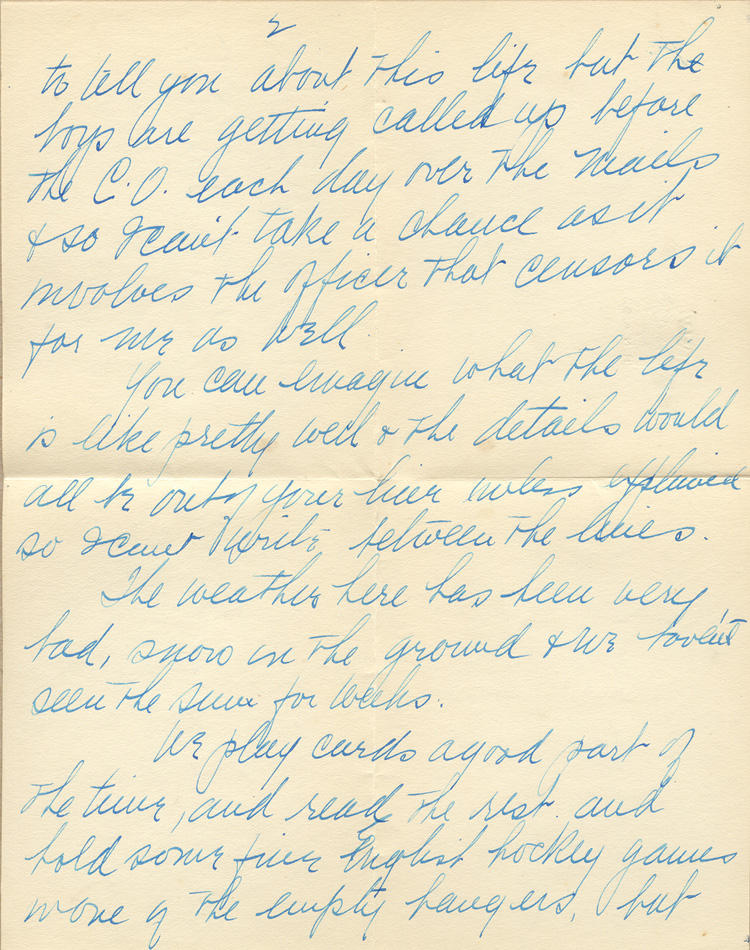 2
to tell you about this life but the
boys are getting called up before
the C.O. each day over the mails
& so I can't take a chance as it
involves the officer that censors it
for me as well.
You can imagine what the life
is like pretty well & the details would
all be out of your line unless explained
so I cant write between the lines.
The weather here has been very
bad, snow on the ground & we haven't
seen the sun for weeks.
We play cards a good part of
the time, and read the rest and
hold some fine English hockey games
in one of the empty hangers, but